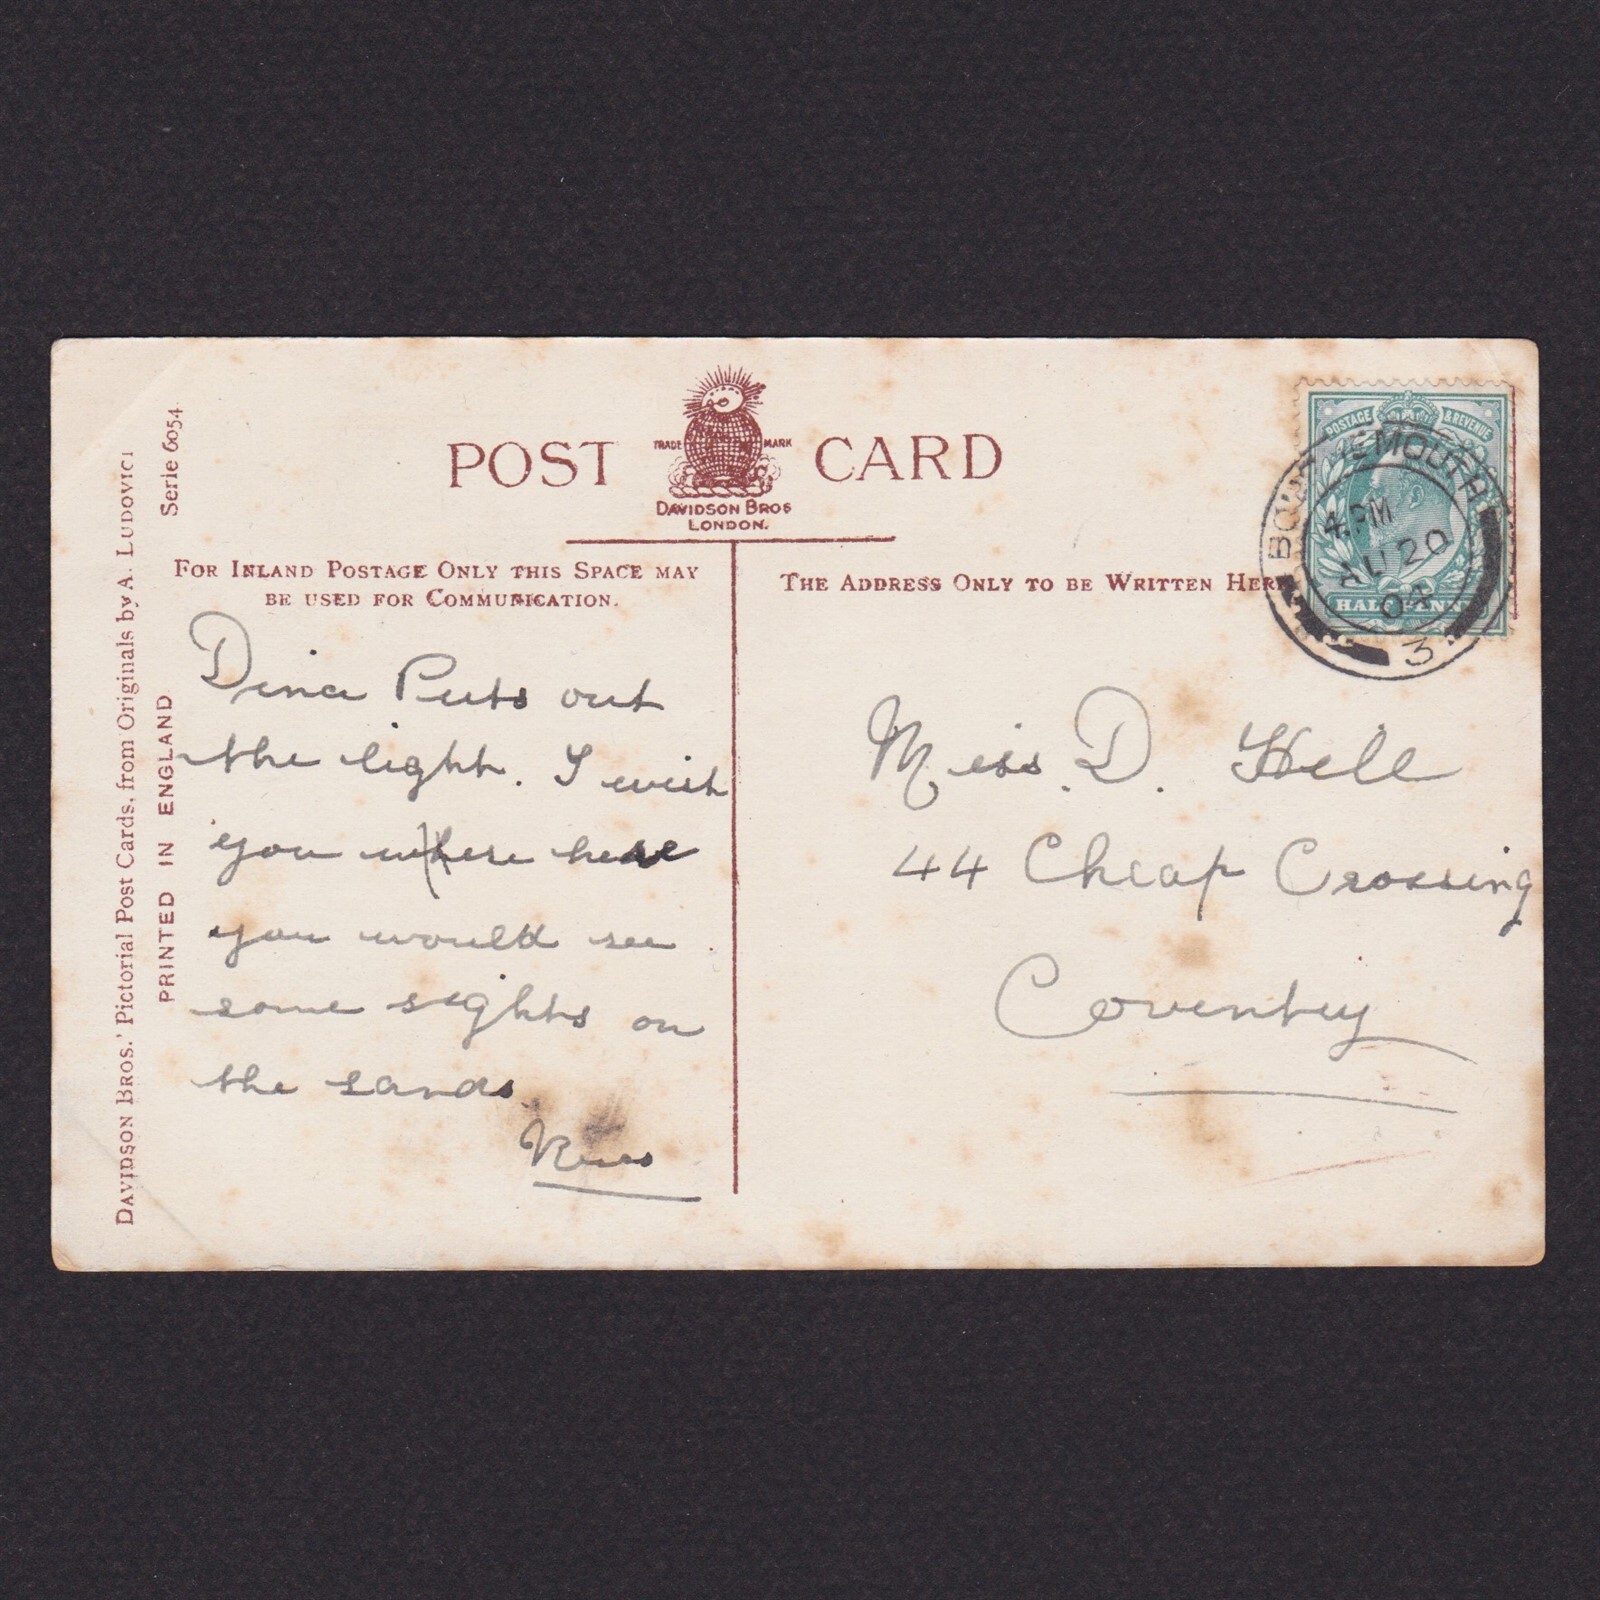 POST CARD
TRADE MARK
DAVIDSON BROS
LONDON.
FOR INLAND POSTAGE ONLY THIS SPACE MAY
BE USED FOR COMMUNICATION.
THE ADDRESS ONLY TO BE WRITTEN HERE
DAVIDSON BROS.' Pictorial Post Cards, from Originals by A. LUDOVICI
PRINTED IN ENGLAND
Serie 6054
Dina Puts out
the light. I wish
you where here
you would see
some sights on
the sands
Miss. D. Hill
44 Cheap Crossing
Coventry
POSTAGE & REVENUE
HALFPENNY
BOURNEMOUTH
4. PM
AU 20
04
3